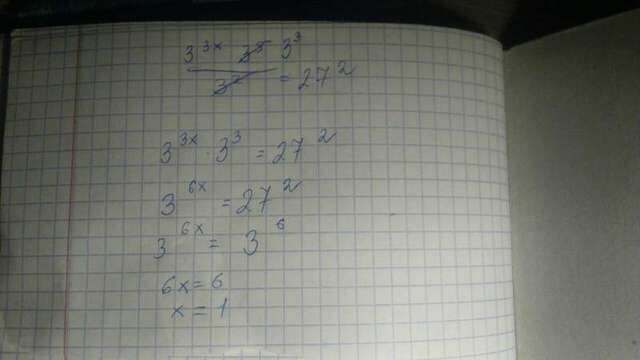 3^{3x} 3^3
= 27^2
3^{3x} · 3^3 = 27^2
3^{6x} = 27^2
3^{6x} = 3^6
6x = 6
x = 1